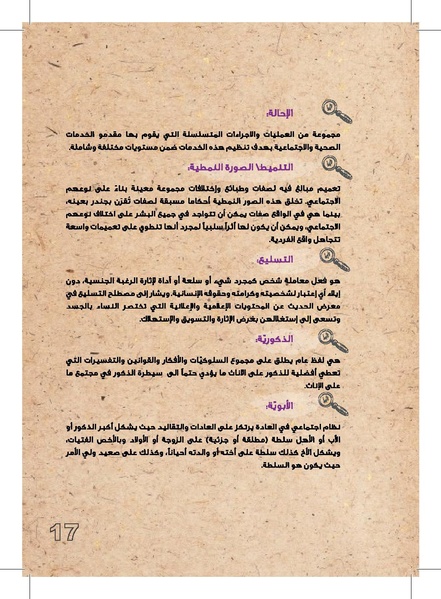 الإحالة:
مجموعة من العمليات والاجراءات المتسلسلة التي يقوم بها مقدمو الخدمات
الصحية والاجتماعية بهدف تنظيم هذه الخدمات ضمن مستويات مختلفة وشاملة.
التنميط\ الصورة النمطية:
تعميم مبالغ فيه لصفات وطبائع وإختلافات مجموعة معينة بناءً على نوعهم
الاجتماعي. تخلق هذه الصور النمطية أحكاما مسبقة لصفات تُقرَن بجندر بعينه،
بينما هي في الواقع صفات يمكن أن تتواجد في جميع البشر على اختلاف نوعهم
الاجتماعي، ويمكن أن يكون لها أثراً سلبياً لمجرد أنها تنطوي على تعميمات واسعة
تتجاهل واقع الفردية.
التسليع:
هو فعل معاملةِ شخص كمجرد شيء أو سلعة أو أداة لإثارة الرغبة الجنسية، دون
إيلاء أي إعتبار لشخصيته وكرامته وحقوقه الإنسانية. ويشار إلى مصطلح التسليع في
معرض الحديث عن المحتويات الإعلامية والإعلانية التي تختصر النساء بالجسد
وتسعى إلى إستغلالهن بغرض الإثارة والتسويق والإستهلاك.
الذكوريّة:
هي لفظ عام يطلق على مجموع السلوكيّات والأفكار والقوانين والتفسيرات التي
تعطي أفضلية للذكور على الاناث ما يؤدي حتماً الى سيطرة الذكور في مجتمع ما
على الإناث.
الأبويّة:
نظام اجتماعي في العادة يرتكز على العادات والتقاليد حيث يشكل أكبر الذكور أو
الأب أو الأهل سلطة (مطلقة أو جزئية) على الزوجة أو الأولاد وبالأخص الفتيات،
ويشكل الأخ كذلك سلطة على أخته أو والدته أحياناً، وكذلك على صعيد ولي الأمر
حيث يكون هو السلطة.
17